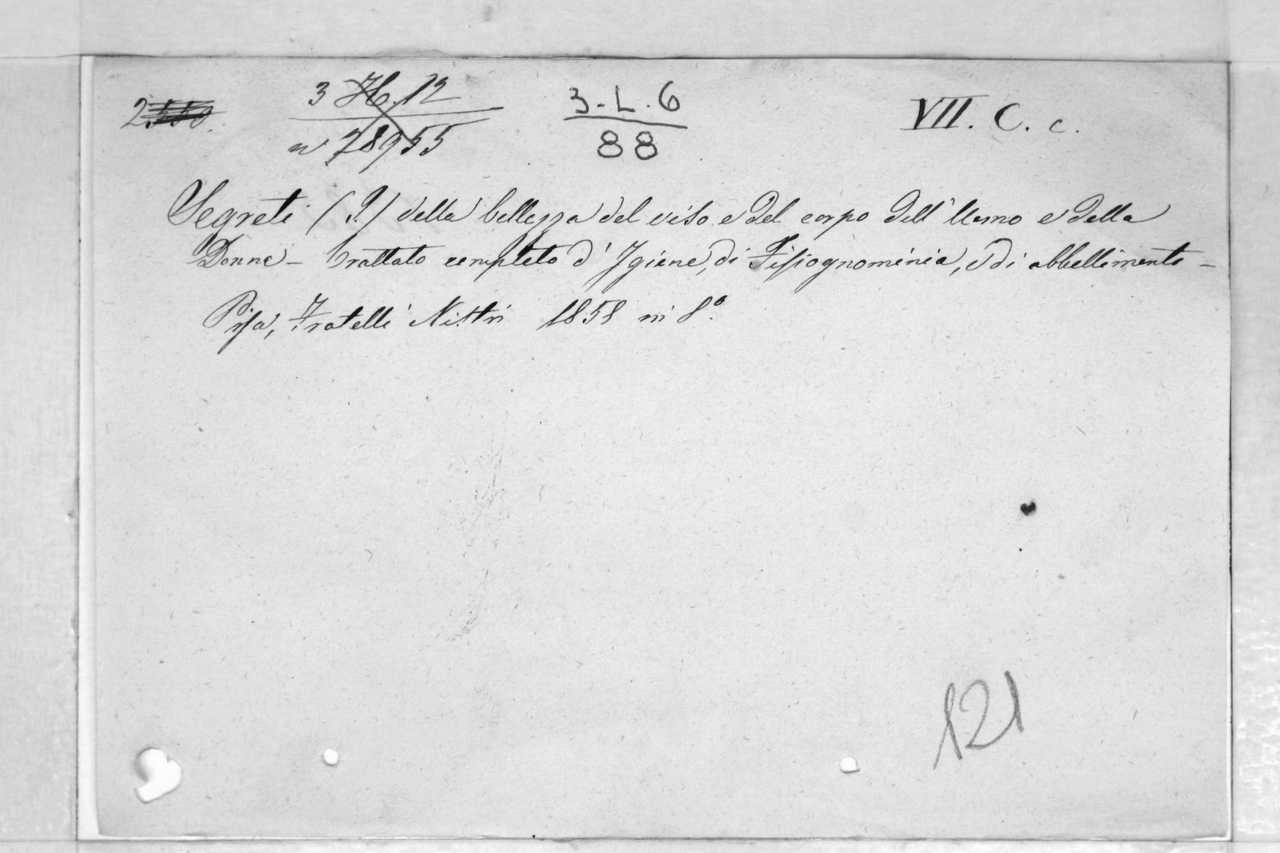 3 H. 12
n 78955
3 - L . 6
88
VII. C. c.
Segreti (I) della bellezza del viso e del corpo dell'Uomo e della
Donna - Trattato completo d'Igiene, di Fisiognominia, e di abbellimento -
Pisa, Fratelli Nistri 1858 in 8.°
121